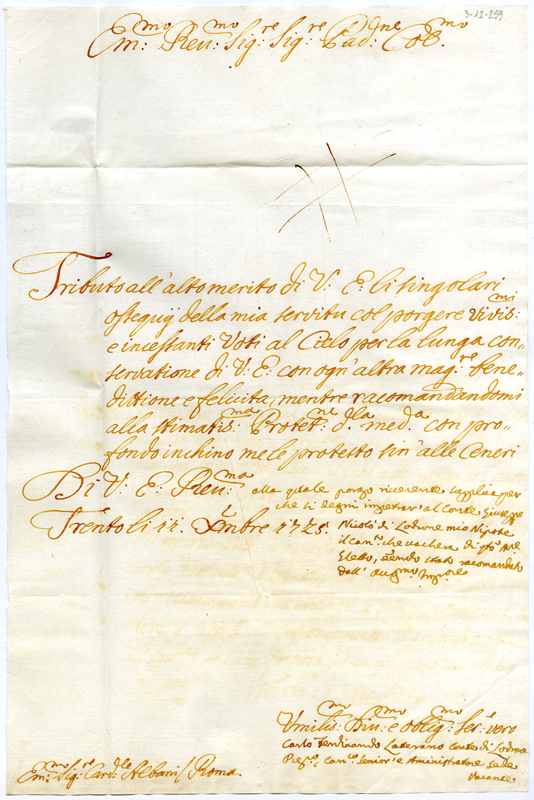 3-12-259
Em:mo Reu:mo Sig:re Sig:re Pad:ne Cob:mo
Tributo all'alto merito di V: E: li singolari
ossequij della mia servitu col porgere vivis:mi
e incessanti Voti al Cielo per la lunga con-
servatione di V: E: con ogn'altra mag:re bene-
dittione e felicita, mentre racomandandomi
alla stimatis:ma Protet:ne d:la med:a con pro-
fondo inchino me le protesto sin'alle Ceneri
Di V: E: Reu:ma alla quale porgo riverente supplica per
che si degni impetrar al Conte Giuseppe
Trento li 11. Xmbre 1725. Nicolò di Lodrone mio Nipote
il can:to che vachera di
Eletto, sendo stato racomandato
dall' Aug:mo Imp:re
Vmilis:mo Diu:mo e oblig:mo Ser:e vero
Carlo Ferdinando Laterano Conte di Lodrone
Can:co senior e Aministratore sede
vacante
Em:mo Sig:re Card:le Albani / Roma.